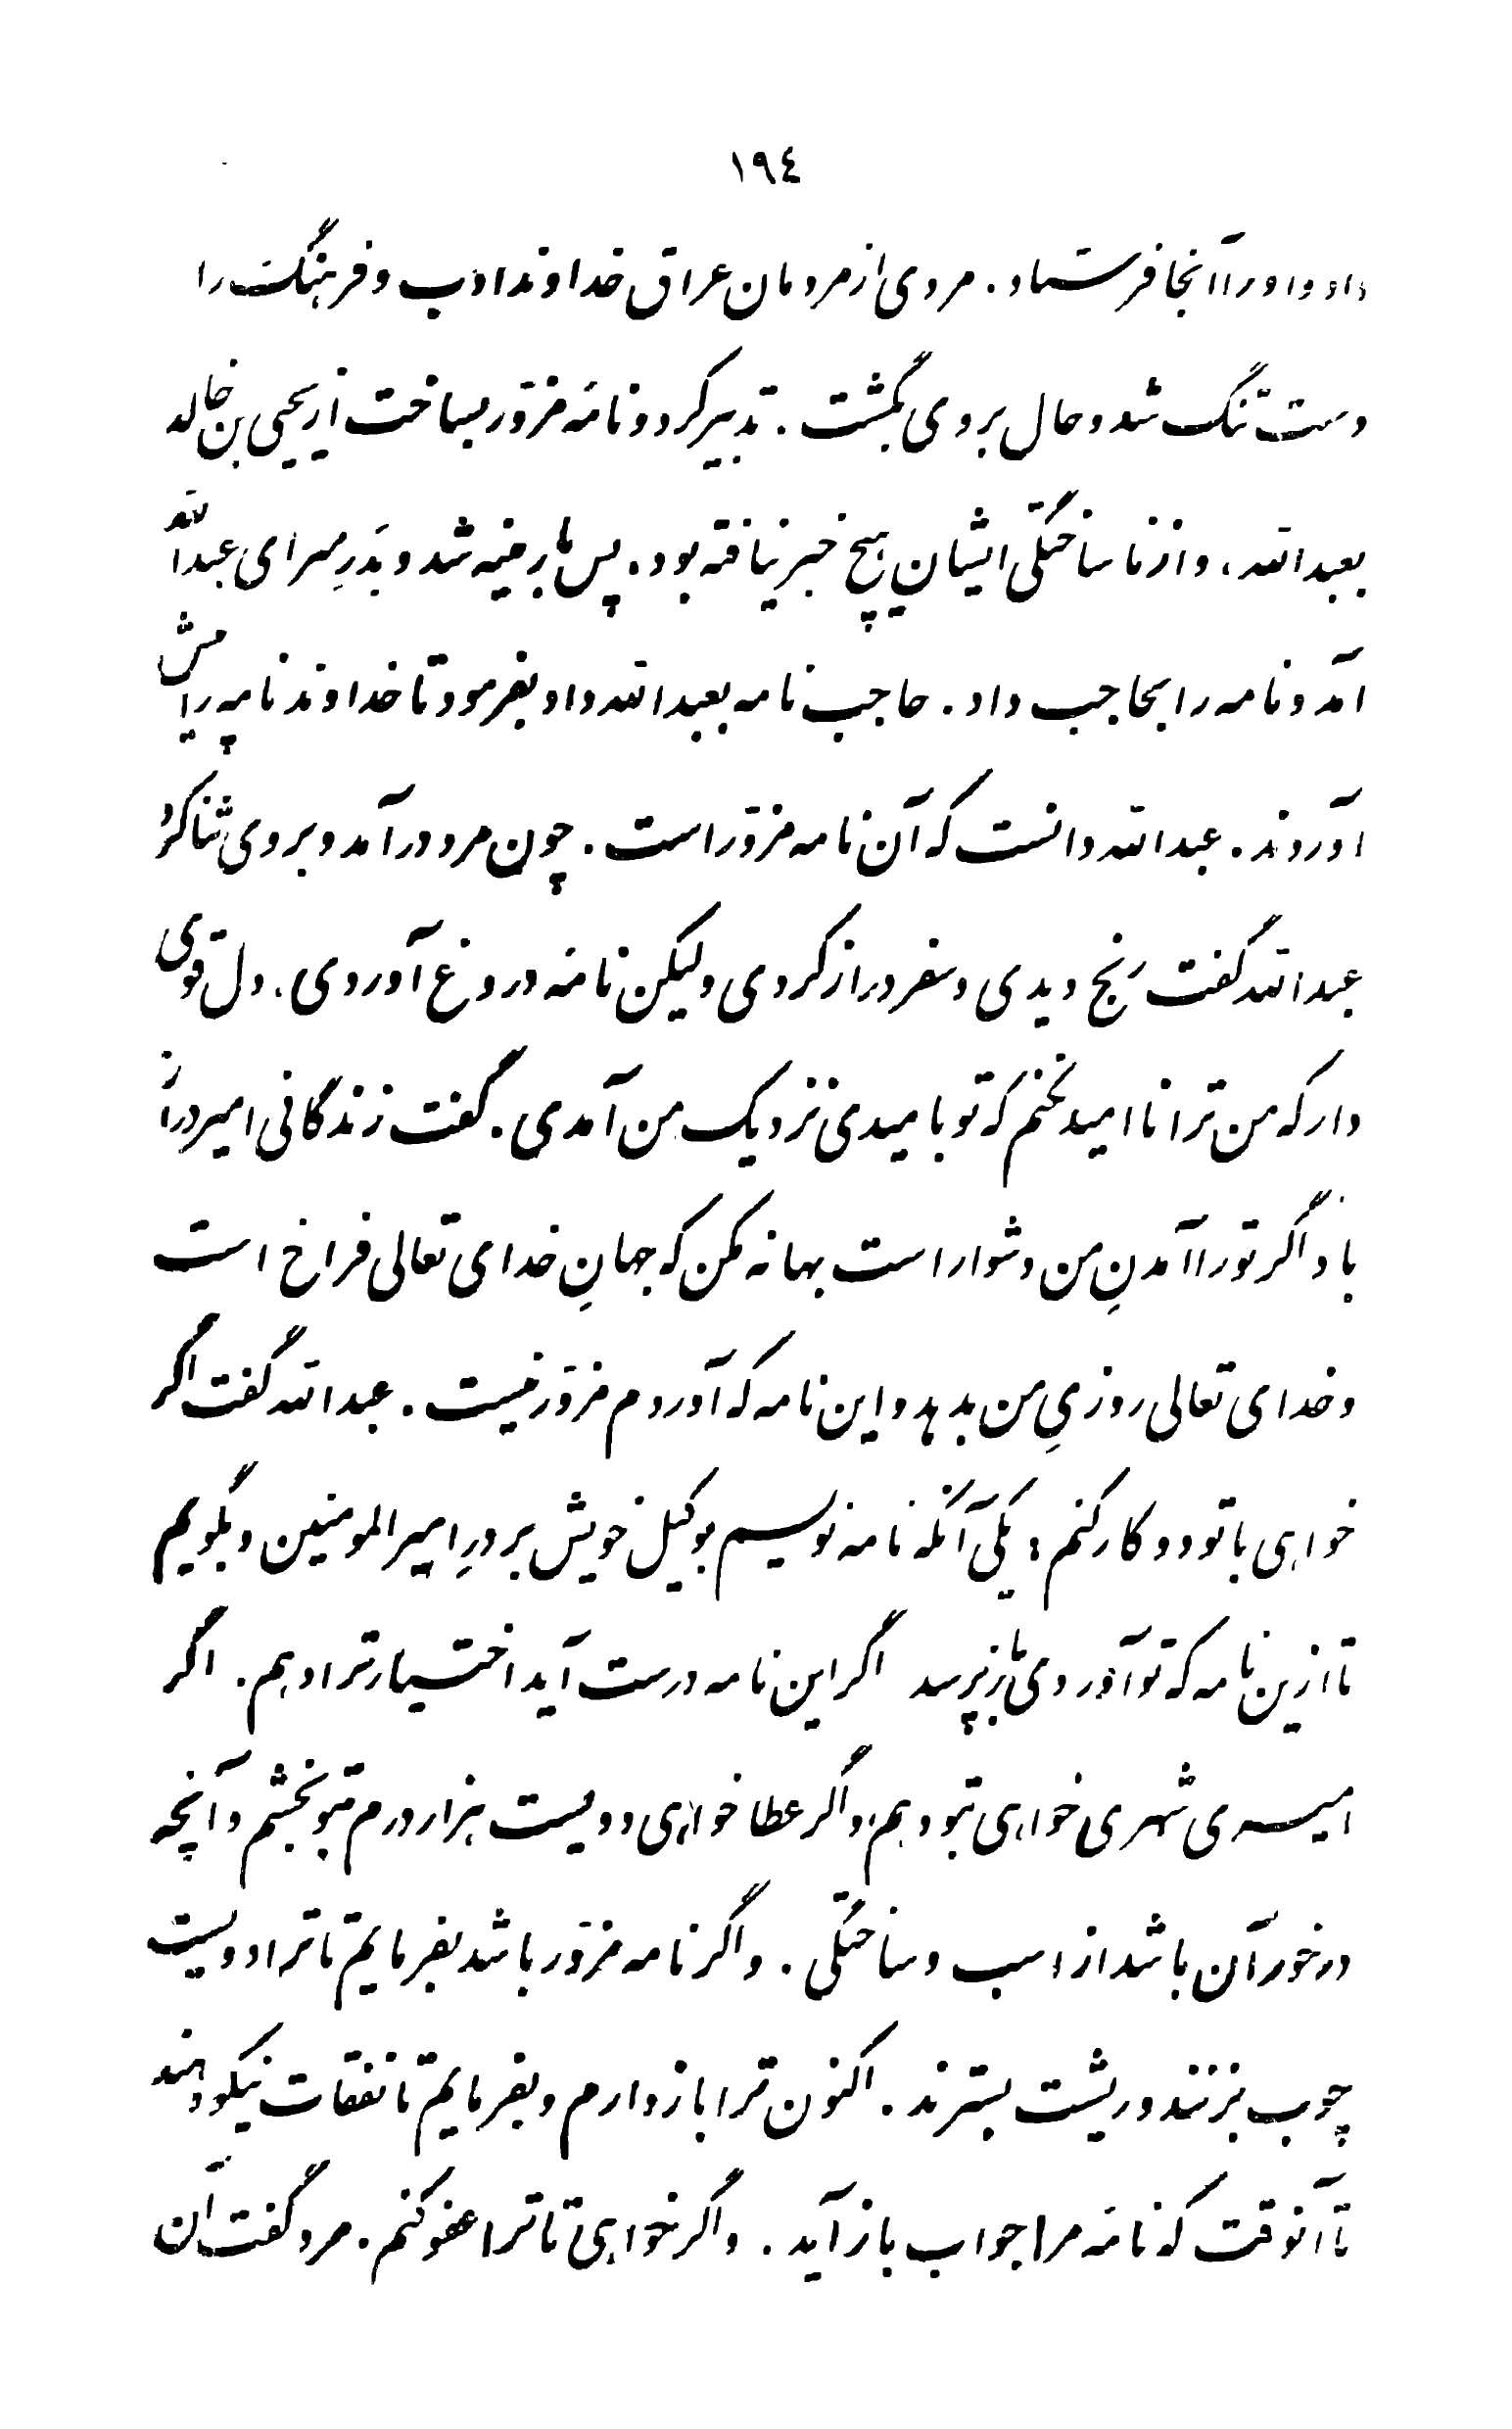 ١٩٤
داد واورا آنجا فرستاد. مردی از مردمان عراق خداوند ادب و فرهنگ را
دست تنگ شد و حال بروی بگشت. تدبیر کرد و نامهٔ مزوّر بساخت از یحیی بن خالد
بعبدالله، و از ناساختگی ایشان هیچ خبر نیافته بود. پس بارمنیه شد و بدَرِ سرای عبدالله
آمد و نامه را بحاجب داد. حاجب نامه بعبدالله داد بفرمود تا خداوند نامه را پیش
آوردند. عبدالله دانست که آن نامه مزوّر است. چون مرد درآمد و بروی ثنا کرد
عبدالله گفت رَنج دیدی و سفر دراز کردی ولیکن نامهٔ دروغ آوردی، دل قوی
دار که من ترا ناامید نکنم که تو بامیدی نزدیک من آمدی. گفت زندگانی امیر دراز
باد اگر تورا آمدنِ من دشوار است بهانه مکن که جهانِ خدای تعالی فراخ است
و خدای تعالی روزیِ من بدهد و این نامه که آوردم مزوّر نیست. عبدالله گفت اگر
خواهی با تو دو کار کنم: یکی آنکه نامه نویسم بوکیل خویش بر درِ امیرالمومنین و بگویم
تا ازین نامه که تو آوردی بازپرسد اگر این نامه درست آید اختیار ترا دهم. اگر
امیری شهری خواهی بتو دهم، و اگر عطا خواهی دویست هزار درم بتو بخشم و آنچه
درخور آن باشد از اسب و ساختگی. و اگر نامه مزوّر باشد بفرمایم تا ترا دویست
چوب بزنند و ریشت بسترند. اکنون ترا بازدارم و بفرمایم تا نفقات نیکو دهند
تا آنوقت که نامهٔ مرا جواب باز آید. و اگر خواهی تا ترا عفو کنم. مرد گفت آن